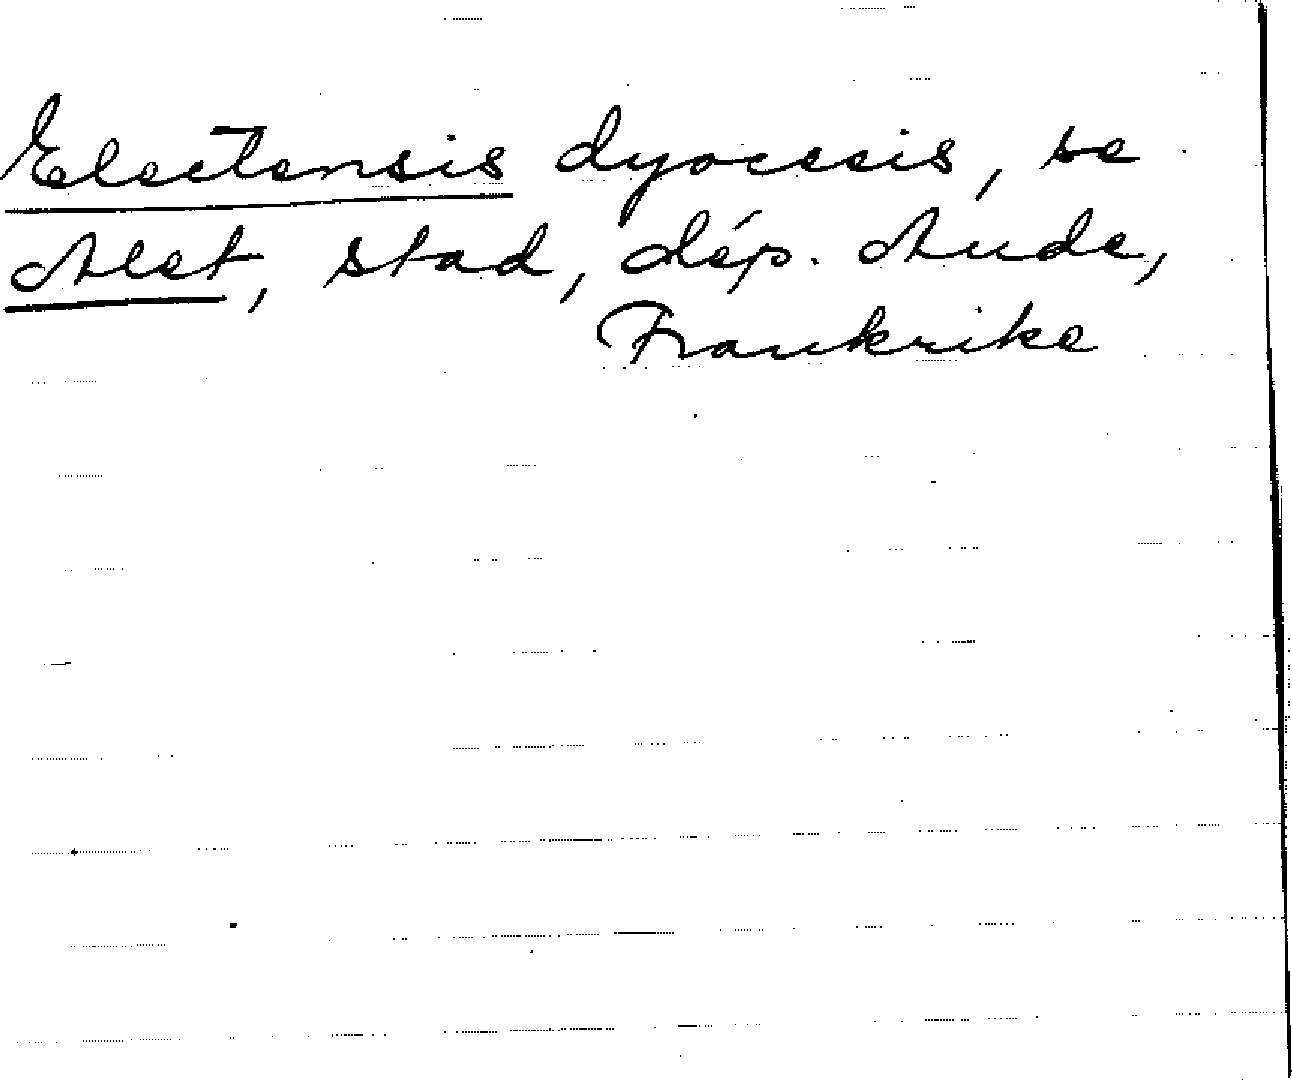 Electensis dyocesis, se
Alet, stad, dép. Aude,
Frankrike